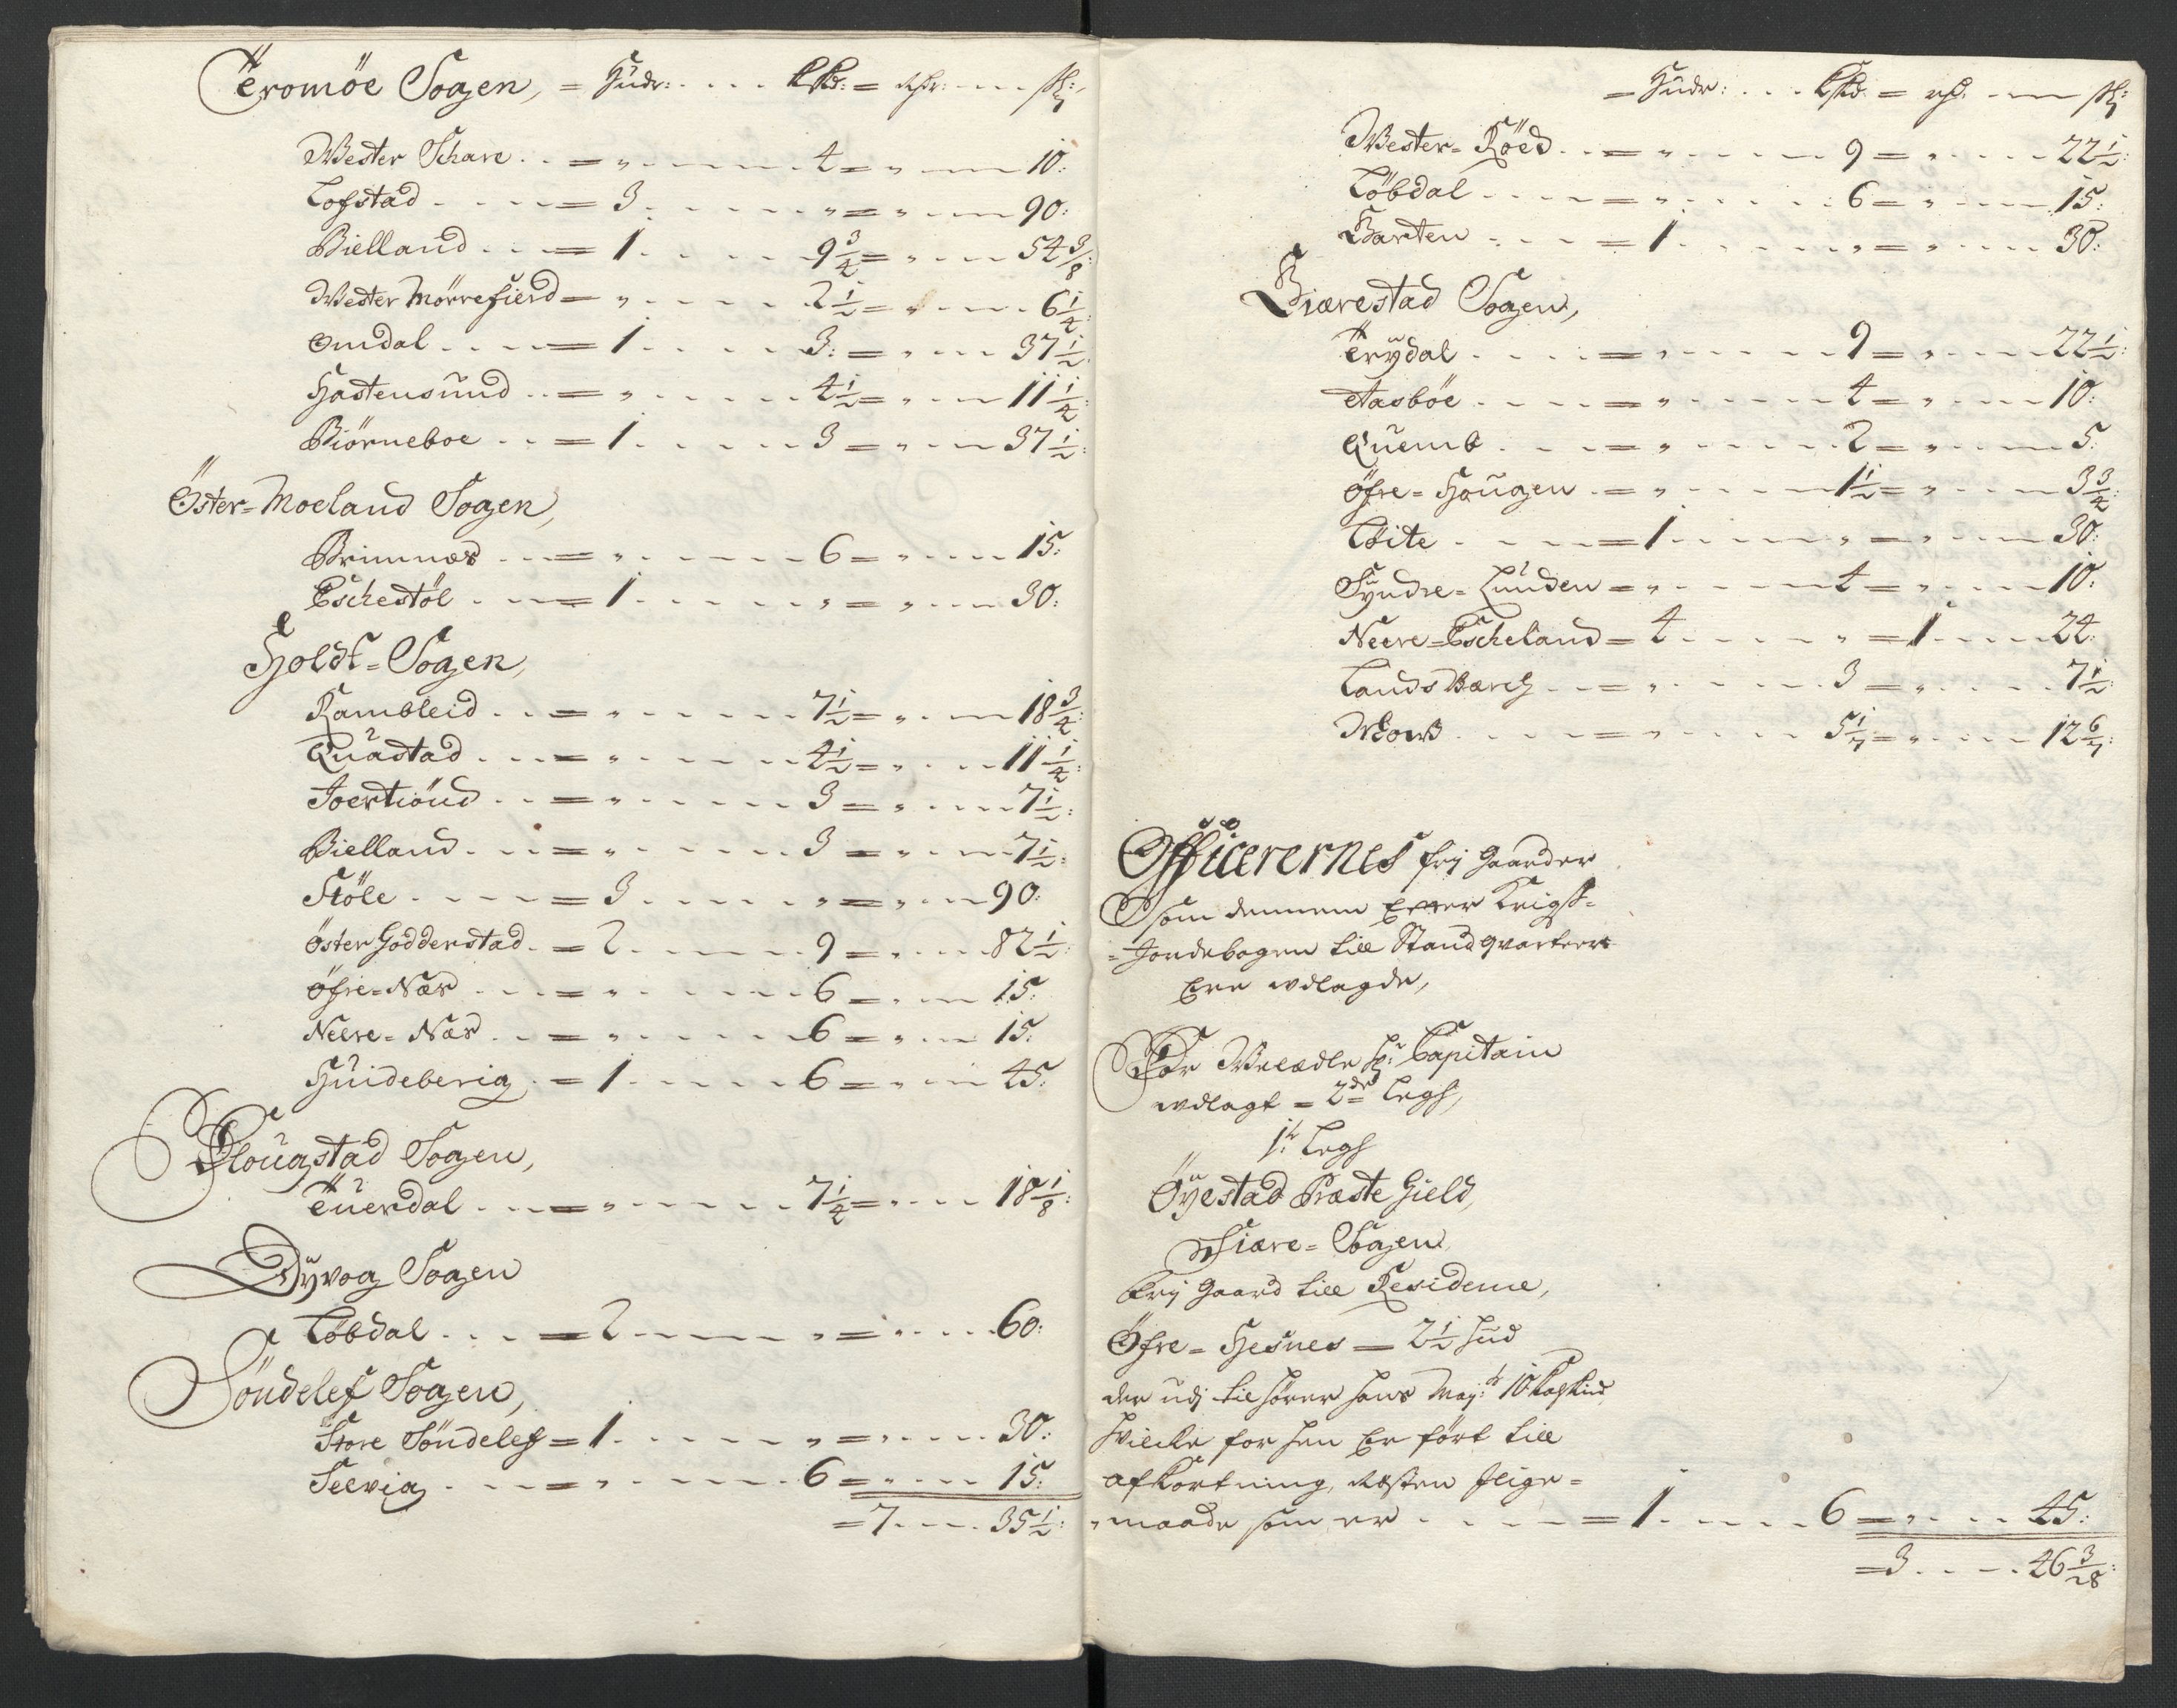 Tromöe Sogen, = Hüdr: . . . . kskd: = rdr: - - - sk:
Wester Schare . . = „ . - - - - - . 4 = „ - - - 10:
Lofstad . - . - - = 3 . - - - - - . „ = „ . - - 90:
Bielland . . . - = 1 . . - . . . 9 3/4 = „ . - - 54 3/8:
Wester Mörrefierd = „ . - - - - . 2 1/2 = „ - - - . 6 1/4:
Omdal . . . - - = 1 . . . - - - 3: = „ - - - 37 1/2:
Hastensund . . = „ . - - - - - . 4 1/2 = „ . - - 11 1/4:
Biörneboe . . = 1 . . - - - . 3 = „ . - - 37 1/2:
Öster-Moeland Sogen,
Brimnæs . . - = „ . - - - - - - 6 = „ - - - - 15:
Eschestöl . . - = 1 . - - - - - . „ = „ - - - 30:
Holdt-Sogen,
Rambleid . . = „ . - - - - - . 7 1/2 = „ . - - 18 3/4:
Quastad . . - = „ . - - - - - . 4 1/2 = „ . - - 11 1/4:
Joertiönd . . = „ . - - - - - . 3 = „ . - - - 7 1/2:
Bielland . . - = „ . - - - - - . 3 = „ . - - 7 1/2:
Stöle . - - - - = 3 . - - - - - . „ = „ . - - 90:
Öster Godderstad . = 2 . - - - - - . 9 = „ . - - - 82 1/2:
Öfre-Næs . . - = „ . - - - - - . 6 = „ . - - 15:
Neere-Næs . . = „ . - - - - - 6 = „ . - - 15:
Huideberig . = 1 . - - - - 6 = „ . - - 45:
Plougstad Sogen,
Tuerdal . . - - = „ . - - - - - - 7 1/4 = „ . - - 18 1/8:
Dyvog Sogen
Löbdal . . . - = 2 - - - - - - „ = „ . - - - . 60:
Söndelef Sogen,
Store Söndelef = 1 . - - - - - - „ = „ . - - - . 30:
Seevig . - - - = „ . - - - - - - 6 = „ . - - - 15:
= 7 . - - - . 35 1/2:
= Hüdr: . . . kskd = rd. - - - sk:
Wester-Röed . . = „ . - - - . - - 9 = „ . - - - . 22 1/2:
Löbdal . - - - - = „ . - - - - - . 6 = „ . - - - . 15:
Barten . - - - = 1 . . - - - - . „ = „ . - - - . 30:
Giærestad Sogen,
Trydal . - - - - = „ . - - - - - . 9 = „ . - - - . 22 1/2:
Aasböe . - - - - = „ . - - - - - . 4 = „ . - - - - 10:
Quemb . - - - - = „ . - - - - - . 2 = „ . - - - - 5:
Öfre-Hougen . = „ . - - - - - 1 1/2 = „ . - - - . 3 3/4:
Löite . - - - - = 1 . - - - - - „ = „ - - - - 30:
Syndre-Lunden = „ . - - - - - . 4 = „ . - - - . 10:
Neere-Escheland = 4 . - - - - . „ = 1 . - - - . 24:
Lands Værch . . = „ . - - - - - . 3 = „ . - - - . 7 1/2:
Moen . . - - - = „ . - - - - . 5 1/7 = „ . - - - . 12 6/7:
Officerernes frj Gaarder
som dennem Efter Krigs-
-Jordebogen till Stand qvarteer
Ere udlagde,
For Welædle Hr: Capitain
udlagt = 2de Legh,
1te Legh
Öyestad Præste Gield,
Fiære-Sogen
Frj Gaard till Residence,
Öfre-Hesnes = 2 1/2 hud
der udj tilhører hans Maj:ts 10 Kalskind
hvilcke for hen Er ført till
afkortning, Resten ligr-
„maade som er . - - - - = 1 . - - - 6 = „ . - - . 45:
= 3 . - - - . 46 3/28: